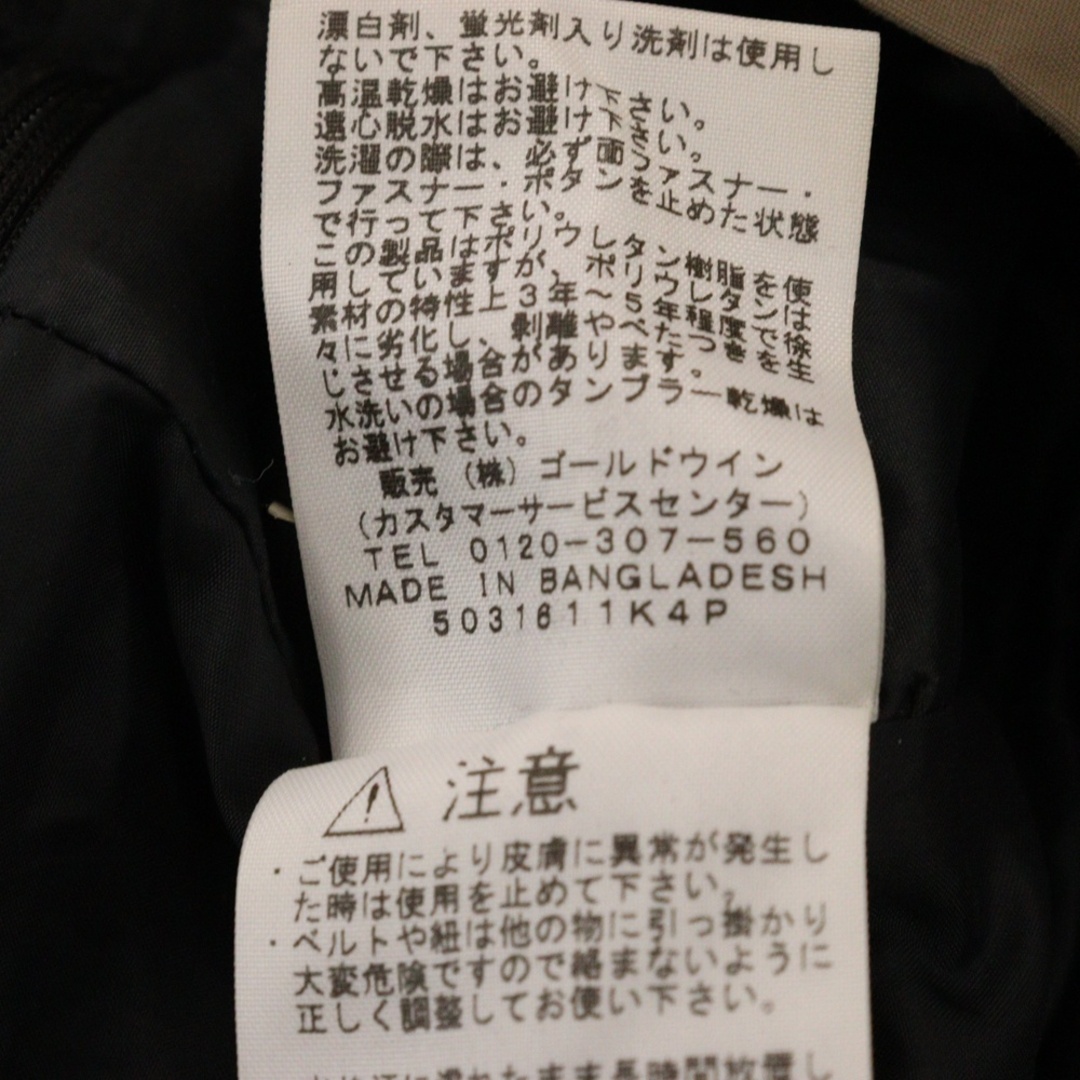 漂白剤、蛍光剤入り洗剤は使用し
ないで下さい。
高温乾燥はお避け下さい。
遠心脱水はお避け下さい。
洗濯の際は、必ず面ファスナー・
ファスナー・ボタンを止めた状態
で行って下さい。
この製品はポリウレタン樹脂を使
用していますが、ポリウレタンは
素材の特性上3年～5年程度で徐
々に劣化し、剥離やべたつきを生
じさせる場合があります。
水洗いの場合のタンブラー乾燥は
お避け下さい。
販売 (株) ゴールドウイン
(カスタマーサービスセンター)
TEL 0120-307-560
MADE IN BANGLADESH
5031611K4P
注意
・ご使用により皮膚に異常が発生し
た時は使用を止めて下さい。
・ベルトや紐は他の物に引っ掛かり
大変危険ですので絡まないように
正しく調整してお使い下さい。
濡れたまま長時間放置し